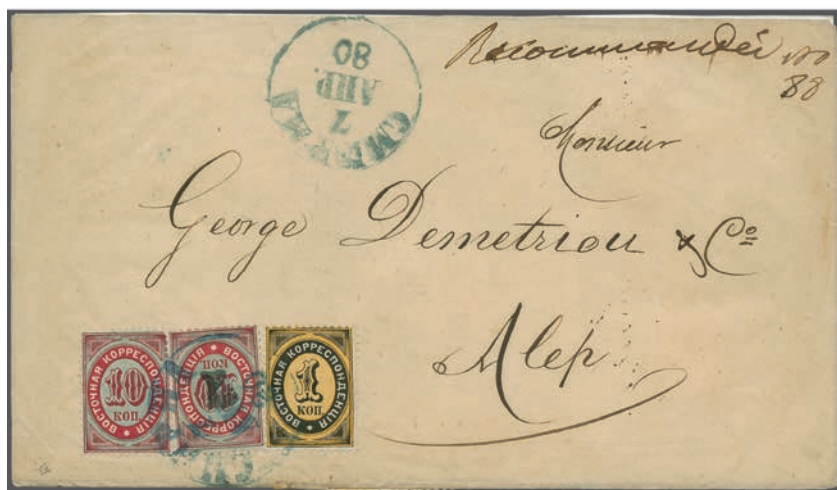 Recommandée No
88
СМИРНА
7
АПР.
80
Monsieur
George Demetriou & Co
Alep
ВОСТОЧНАЯ КОРРЕСПОНДЕНЦІЯ
10
КОП.
ВОСТОЧНАЯ КОРРЕСПОНДЕНЦІЯ
КОП
ВОСТОЧНАЯ КОРРЕСПОНДЕНЦІЯ
1
КОП.